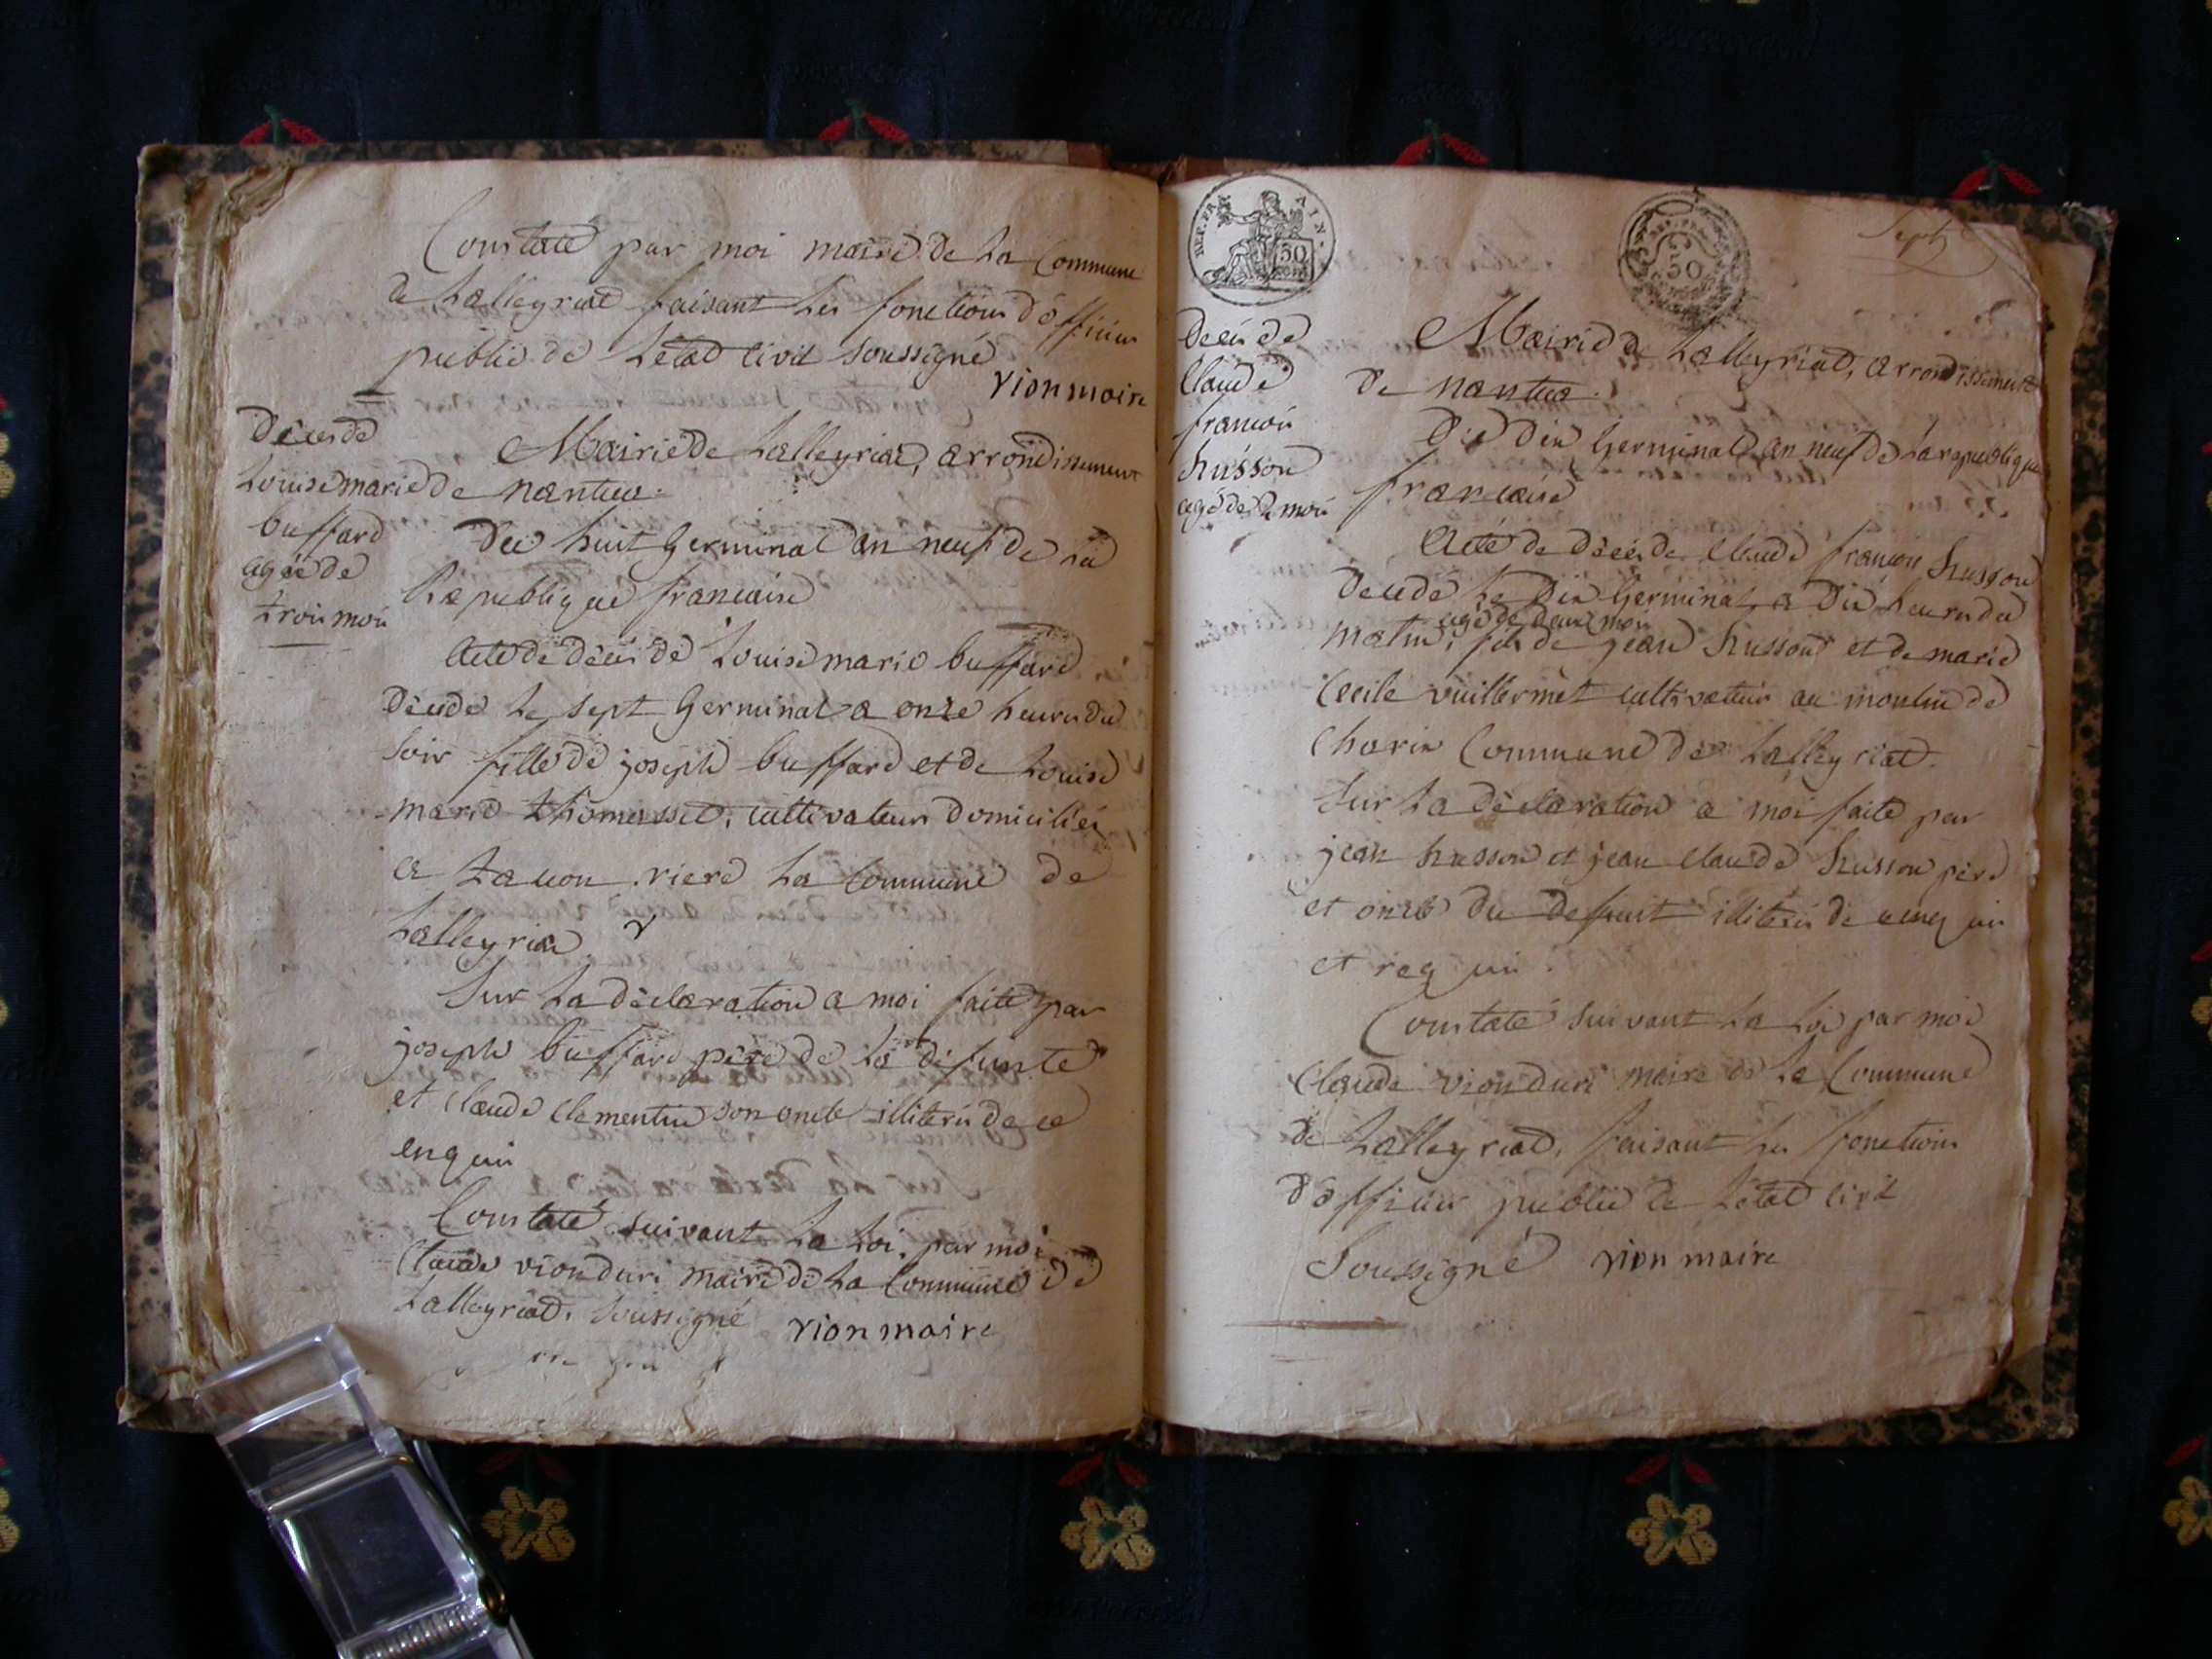 Constaté par moi maire de La Commune
de Lalleyriat faisant Les fonctions d'officier
public de L'etat Civil soussigné
vion maire
Décès de
Louise marie
buffard
agée de
trois mois
Mairie de Lalleyriat, arrondissement
de nantua.
Du huit Germinal an neuf de La
République francaise
Acte de décès de Louise marie buffard
décédé Le sept Germinal a onze heures du
soir fille de joseph buffard et de Louise
marie thomasset, cultivateurs domiciliés
a Laucon riere La Commune de
Lalleyriat
Sur La déclaration a moi faite par
joseph buffard père de La défunte
et Claude Clementin son oncle illiterés de ce
enquis
Constaté suivant La Loi, par moi
Claude vion duri maire de La Commune de
Lalleyriat. soussigné vion maire
REP. FRA. AIN.
50
50
Sept
Décès de
Claude
francois
husson
agé de 2 mois
Mairie de Lalleyriat, arrondissement
de nantua.
Du dix Germinal an neuf de La république
francaise
Acte de décès de Claude francois husson
décédé Le dix Germinal, a dix heures du
agé de deux mois
matin, fils de jean husson et de marie
Cecile vuillermet cultivateurs au moulin de
Charix Commune de Lalleyriat.
Sur La déclaration a moi faite par
jean husson et jean Claude husson père
et oncle du defunt illiterés de ce enquis
et requis.
Constaté suivant La Loi par moi
Claude vion duri maire de La Commune
de Lalleyriat, faisant Les fonctions
d'officier public de L'etat Civil
Soussigné vion maire